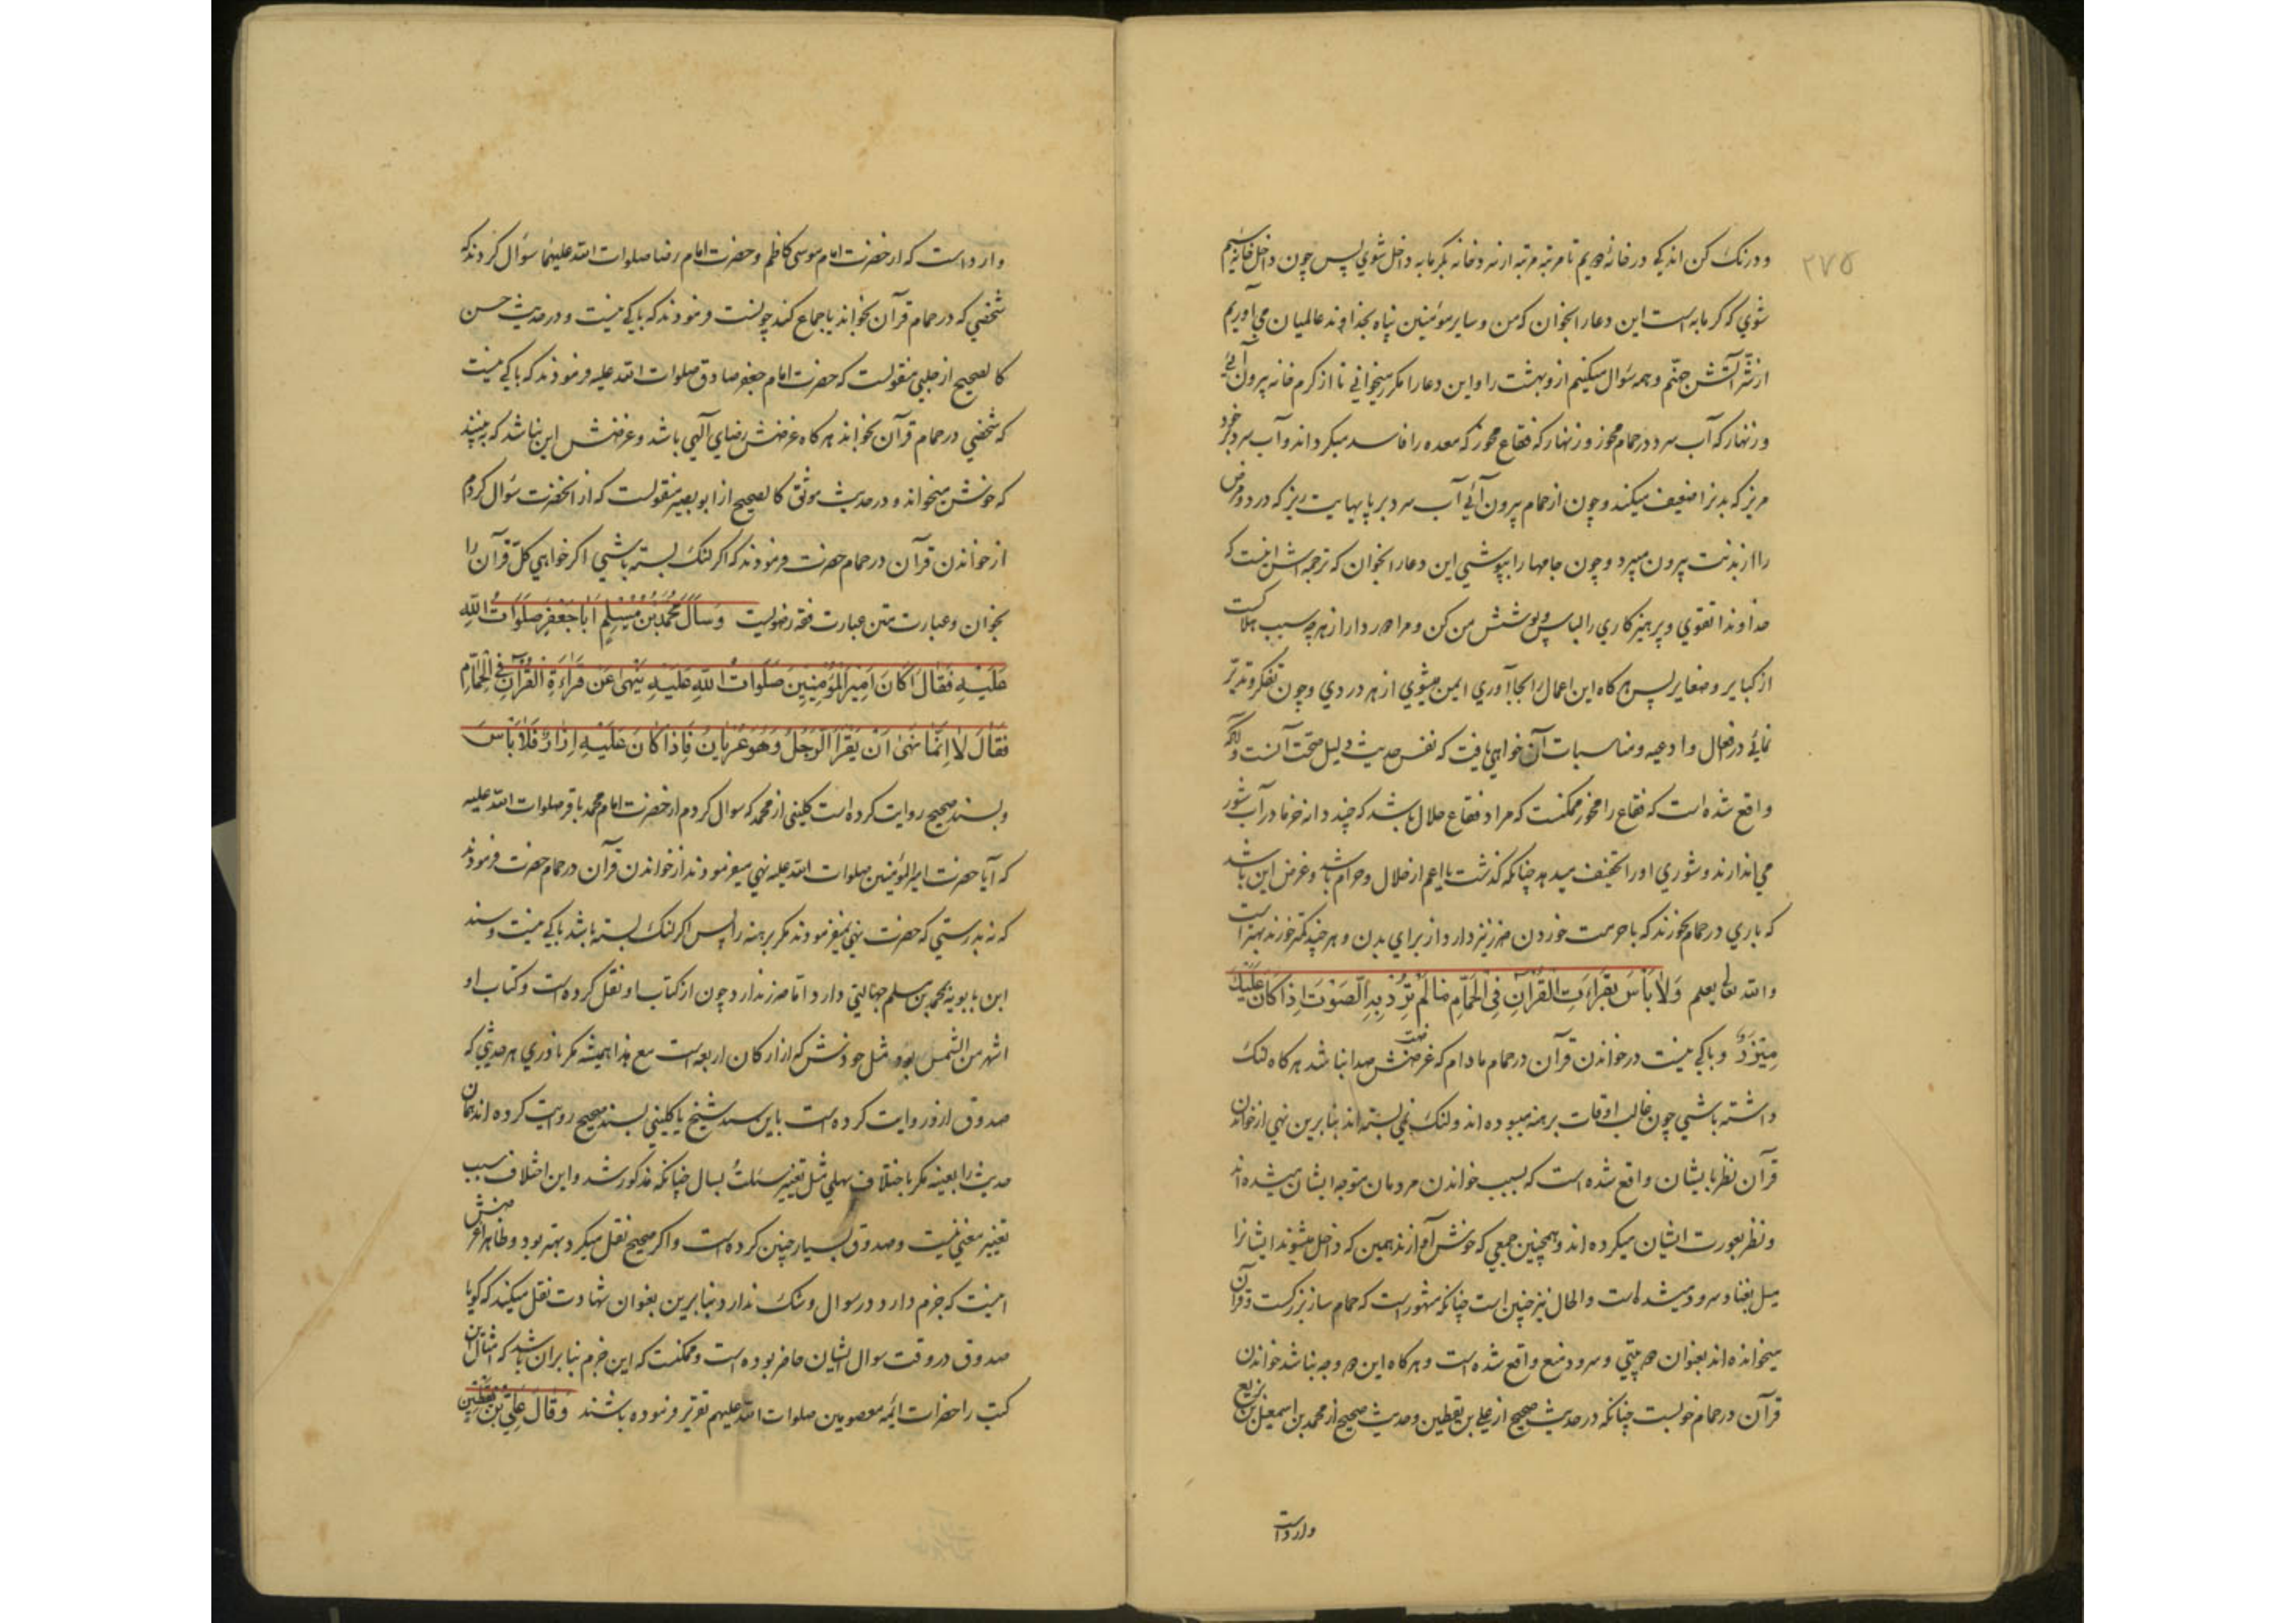 ۲۷۵
و درنک کن اندکی در خانهٔ دویم تا مرتبه مرتبه از سردخانه بکرمابه داخل شوی پس چون داخل خانهٔ سیم
شوی که کرمابه است این دعا را بخوان که من و سایر مؤمنین پناه بخداوند عالمیان می آوریم
از شر آتش جهنّم و همه سؤال میکنیم ازو بهشت را و این دعا را مکرر میخوانی تا از کرم خانه بیرون آئی
و زنهار که آب سرد در حمام مخور و زنهار که فقاع مخور که معده را فاسد میکرداند و آب سرد بر خود
مریز که بدنرا ضعیف میکند و چون از حمام بیرون آئی آب سرد بر پایهایت ریز که درد و مرض
را از بدنت بیرون میبرد و چون جامها را بپوشی این دعا را بخوان که ترجمه اش اینست که
خداوندا تقوی و پرهیزکاری را لباس و پوشش من کن و مرا دور دار از هرچه سبب هلاکت است
از کبایر و صغایر پس هر کاه این اعمال را بجا آوری ایمن میشوی از هر دردی و چون تفکر و تدبّر
نمائی در افعال و ادعیه و مناسبات آن خواهی یافت که نفس حدیث دلیل صحّت آنست و آنکه
واقع شده است که فقاع را مخور ممکنست که مراد فقاع حلال باشد که چند دانه خرما در آب شور
می اندازند و شوری او را تخفیف میدهد چنانکه کذشت یا اعم از حلال و حرام باشد و غرض این باشد
که باری در حمام نخورند که با حرمت خوردن ضرر نیز دارد از برای بدن و هر چند کمتر خورند بهتر است
والله تعالی یعلم وَلَا بَأسَ بِقِرَاءَتِ القُرْآنِ فِی الْحَمَّامِ مَا لَمْ تُرِدْ بِهِ الصَّوْتَ اِذَا کَانَ عَلَیْكَ
مِئزَرٌ و باکی نیست در خواندن قرآن در حمام مادام که غرضش صدا نباشد هر کاه لنک
داشته باشی چون غالب اوقات برهنه میبوده اند و لنک نمی بسته اند بنابرین نهی از خواندن
قرآن نظر بایشان واقع شده است که بسبب خواندن مردمان متوجه ایشان میشده اند
و نظر بعورت ایشان میکرده اند و همچنین جمعی که خوش آوازند همین که داخل میشوند ایشانرا
میل بغنا و سرود میشده است و الحال نیز چنین است چنانکه مشهور است که حمام ساز بزرکست و قرآن
میخوانده اند بعنوان دو بیتی و سرود منع واقع شده است و هر کاه این دو وجه نباشد خواندن
قرآن در حمام خوبست چنانکه در حدیث صحیح از علی بن یقطین و حدیث صحیح از محمد بن اسمعیل بن بزیع
وارد است
وارد است که از حضرت امام موسی کاظم و حضرت امام رضا صلوات الله علیهما سؤال کردند که
شخصی که در حمام قرآن بخواند یا جماع کند چونست فرمودند که باکی نیست و در حدیث حسن
کالصحیح از حلبی منقولست که حضرت امام جعفر صادق صلوات الله علیه فرمودند که باکی نیست
که شخصی در حمام قرآن بخواند هر کاه غرضش رضای آلهی باشد و غرضش این نباشد که ببیند
که خوش میخواند و در حدیث موثق کالصحیح از ابو بصیر منقولست که از آنحضرت سؤال کردم
از خواندن قرآن در حمام حضرت فرمودند که اکر لنک بسته باشی اکر خواهی کلّ قرآن را
بخوان و عبارت متن عبارت فقه رضویست وَسَأَلَ مُحَمَّدُ بْنُ مُسْلِمٍ اَبَا جَعْفَرٍ صَلَوَاتُ اللّٰهِ
عَلَیْهِ فَقَالَ اَکَانَ اَمِیرُ الْمُؤْمِنِینَ صَلَوَاتُ اللّٰهِ عَلَیْهِ یَنْهیٰ عَنْ قِرَاءَةِ الْقُرْآنِ فِی الْحَمَّامِ
فَقَالَ لَا اِنَّمَا نَهیٰ اَنْ یَقْرَأَ الرَّجُلُ وَهُوَ عُرْیَانٌ فَاِذَا کَانَ عَلَیْهِ اِزَارٌ فَلَا بَأسَ
و بسند صحیح روایت کرده است کلینی از محمد که سوال کردم از حضرت امام محمد باقر صلوات الله علیه
که آیا حضرت امیر المؤمنین صلوات الله علیه نهی میفرمودند از خواندن قرآن در حمام حضرت فرمودند
که نه بدرستی که حضرت نهی نمیفرمودند مکر برهنه را پس اکر لنک بسته باشد باکی نیست و سند
ابن بابویه بمحمد بن مسلم جهالتی دارد امّا ضرر ندارد چون از کتاب او نقل کرده است و کتاب او
اشهر من الشمس بود مثل خودش که از ارکان اربعه است مع هذا همیشه مکر نادری هر حدیثی که
صدوق ازو روایت کرده است باین سند شیخ یا کلینی بسند صحیح روایت کرده اند همان
حدیث را بعینه مکر باختلاف سهلی مثل تغییر سَئَلتُ بسال چنانکه مذکور شد و این اختلاف سبب
تغییر معنی نیست و صدوق بسیار چنین کرده است و اکر صحیح نقل میکرد بهتر بود و ظاهرا غرضش
اینست که جزم دارد در سوال و شک ندارد بنابرین بعنوان شهادت نقل میکند که کویا
صدوق در وقت سوال ایشان حاضر بوده است و ممکنست که این جزم بنا بر آن باشد که امثال این
کتب را حضرات ائمه معصومین صلوات الله علیهم تقریر فرموده باشند وَقَالَ عَلِیُّ بْنُ یَقْطِینٍ